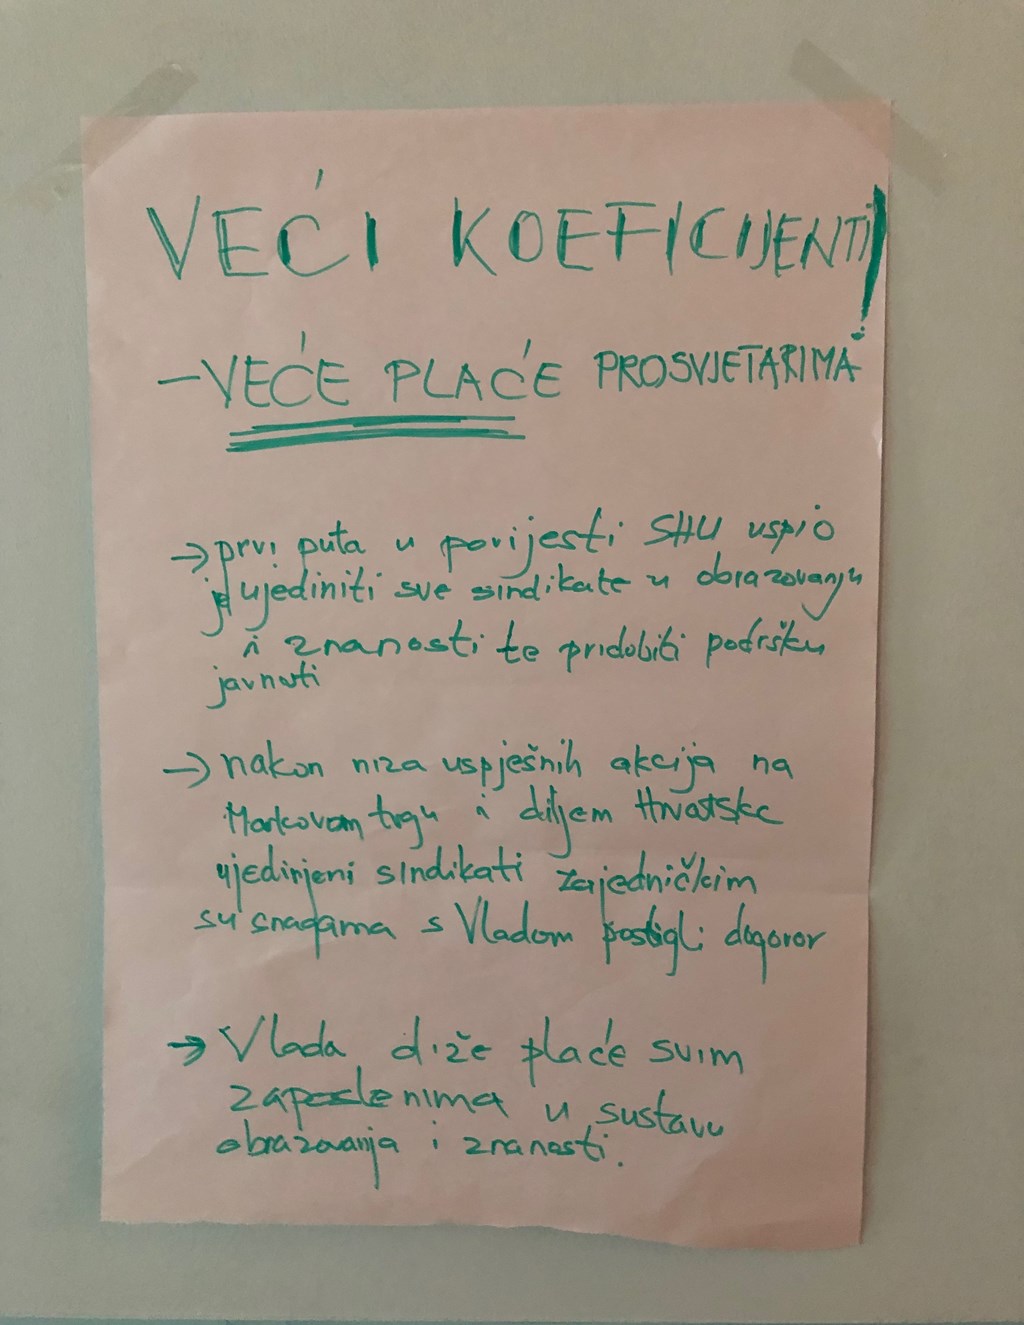 VEĆI KOEFICIJENTI!
- VEĆE PLAĆE PROSVJETARIMA
→ prvi puta u povijesti SHU uspio
je ujediniti sve sindikate u obrazovanju
i znanosti te pridobiti podršku
javnosti
→ nakon niza uspješnih akcija na
Markovom trgu i diljem Hrvatske
ujedinjeni sindikati zajedničkim
su snagama s Vladom postigli dogovor
→ Vlada diže plaće svim
zaposlenima u sustavu
obrazovanja i znanosti.